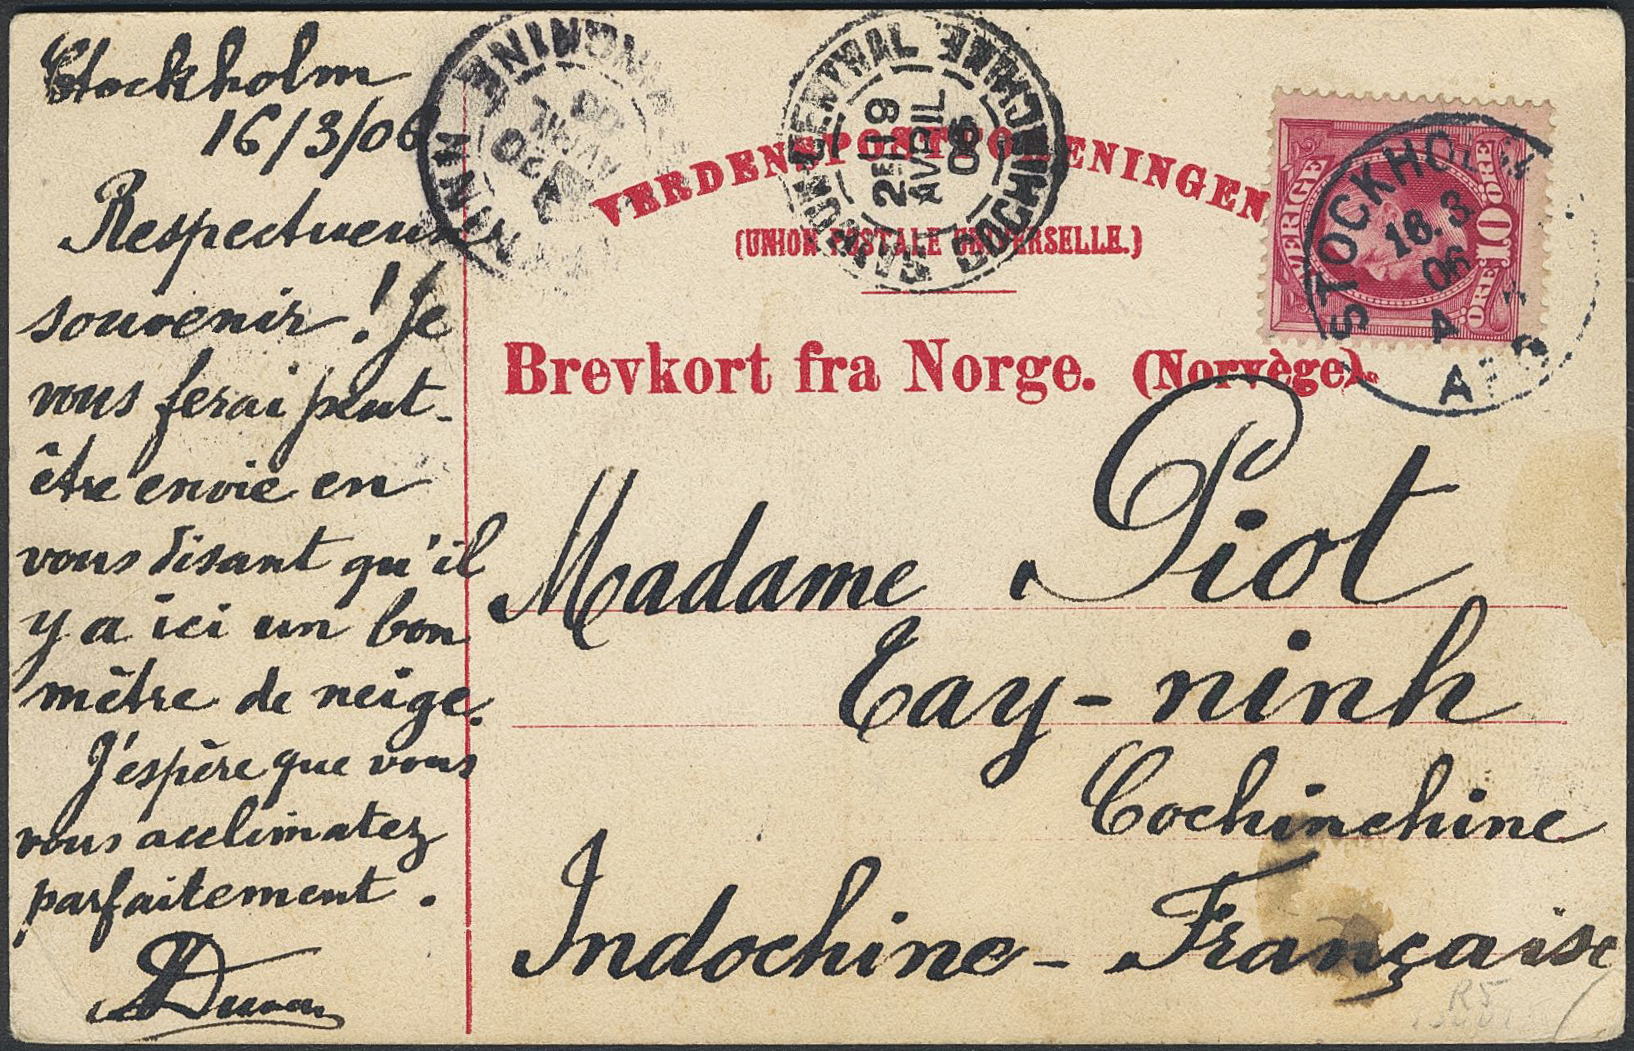 Stockholm
16/3/06
Respectueux
souvenir! Je
vous ferai peut-
être envie en
vous disant qu'il
y a ici un bon
mètre de neige.
J'espère que vous
vous acclimatez
parfaitement.
VERDENSPOSTFORENINGEN
(UNION POSTALE UNIVERSELLE.)
Brevkort fra Norge. (Norvège).
Madame Piot
Tay-ninh
Cochinchine
Indochine-Française
COCHINCHINE
2E/19
AVRIL
06
SVERIGE
10 ÖRE
ÖRE
STOCKHOLM
16. 3
06
R5